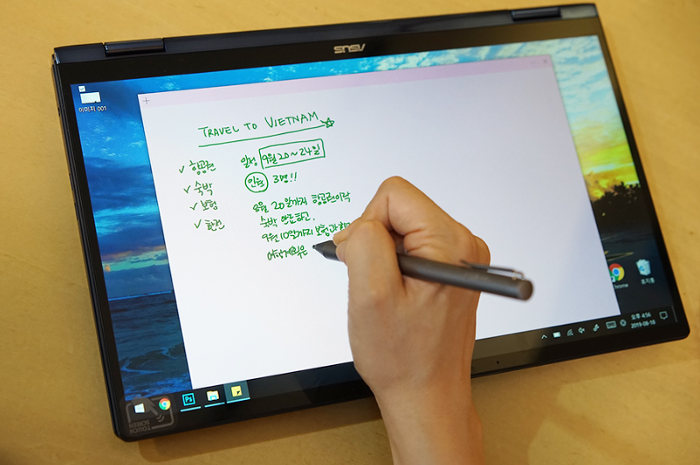 ASUS
이미지 001
TRAVEL TO VIETNAM
✓ 항공권
✓ 숙박
✓ 보험
✓ 환전
일정 9월 20~24일
인원 3명!!
8월 20일까지 항공권이랑
숙박 완료하고,
9월 10일까지 보험과
여행계획은
chrome
휴지통
오후 4:56
2019-08-18
Ps